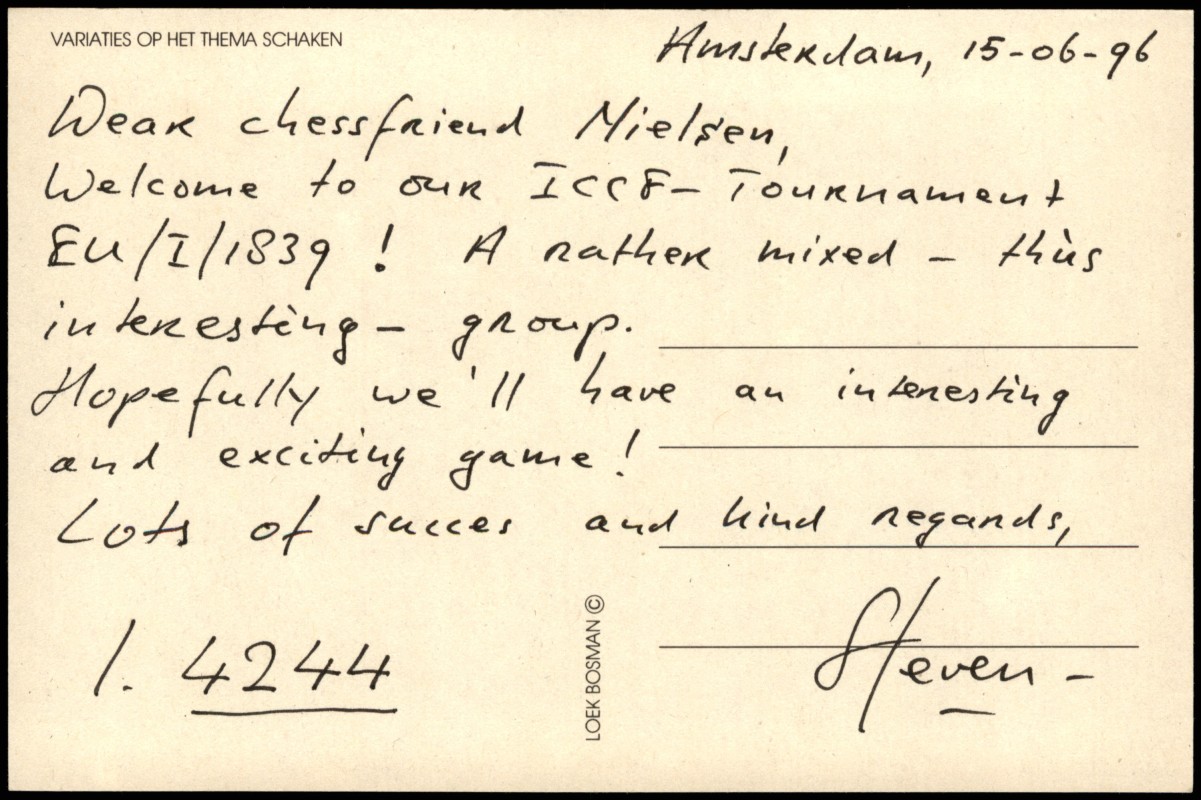 VARIATIES OP HET THEMA SCHAKEN
Amsterdam, 15-06-96
Dear chessfriend Nielsen,
Welcome to our ICCF- Tournament
EU/I/1839! A rather mixed - thus
interesting - group.
Hopefully we'll have an interesting
and exciting game!
Lots of succes and kind regards,
1. 4244
Steven -
LOEK BOSMAN ©